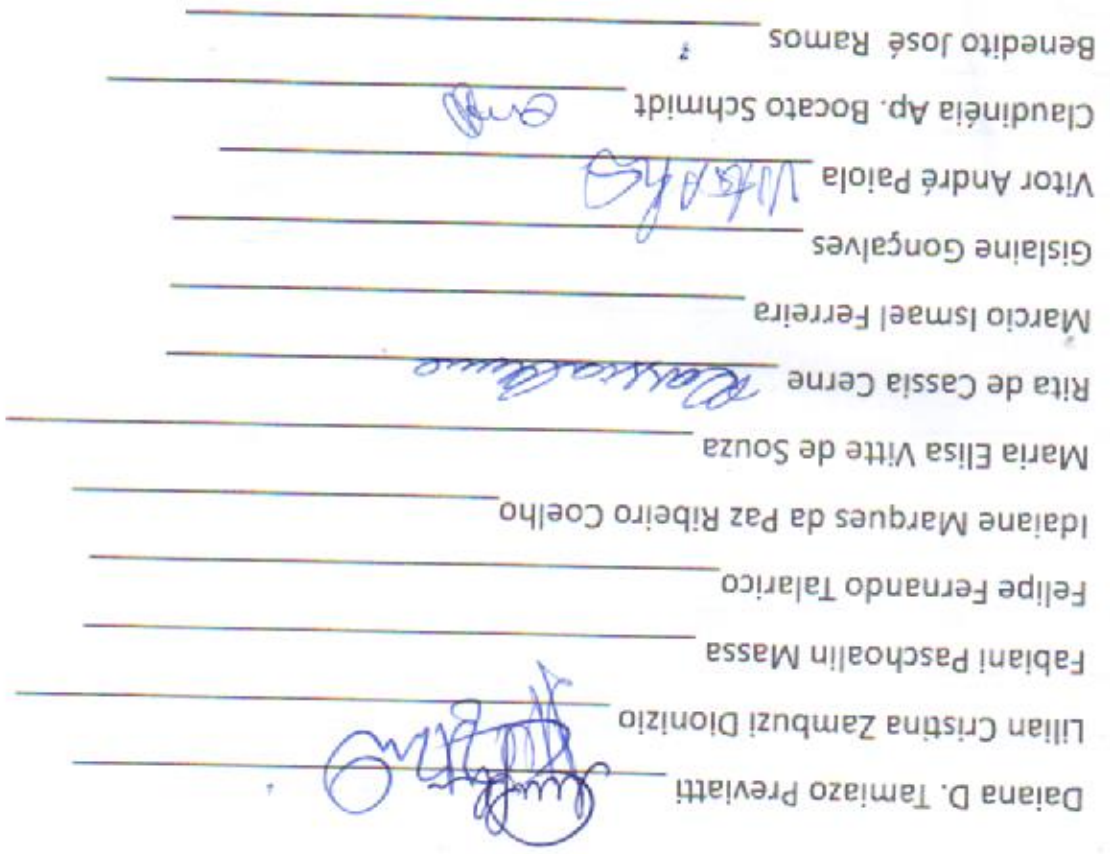 Daiana D. Tamiazo Previatti
Lilian Cristina Zambuzi Dionizio
Fabiani Paschoalin Massa
Felipe Fernando Talarico
Idaiane Marques da Paz Ribeiro Coelho
Maria Elisa Vitte de Souza
Rita de Cassia Cerne
Marcio Ismael Ferreira
Gislaine Gonçalves
Vitor André Paiola
Claudinéia Ap. Bocato Schmidt
Benedito José Ramos